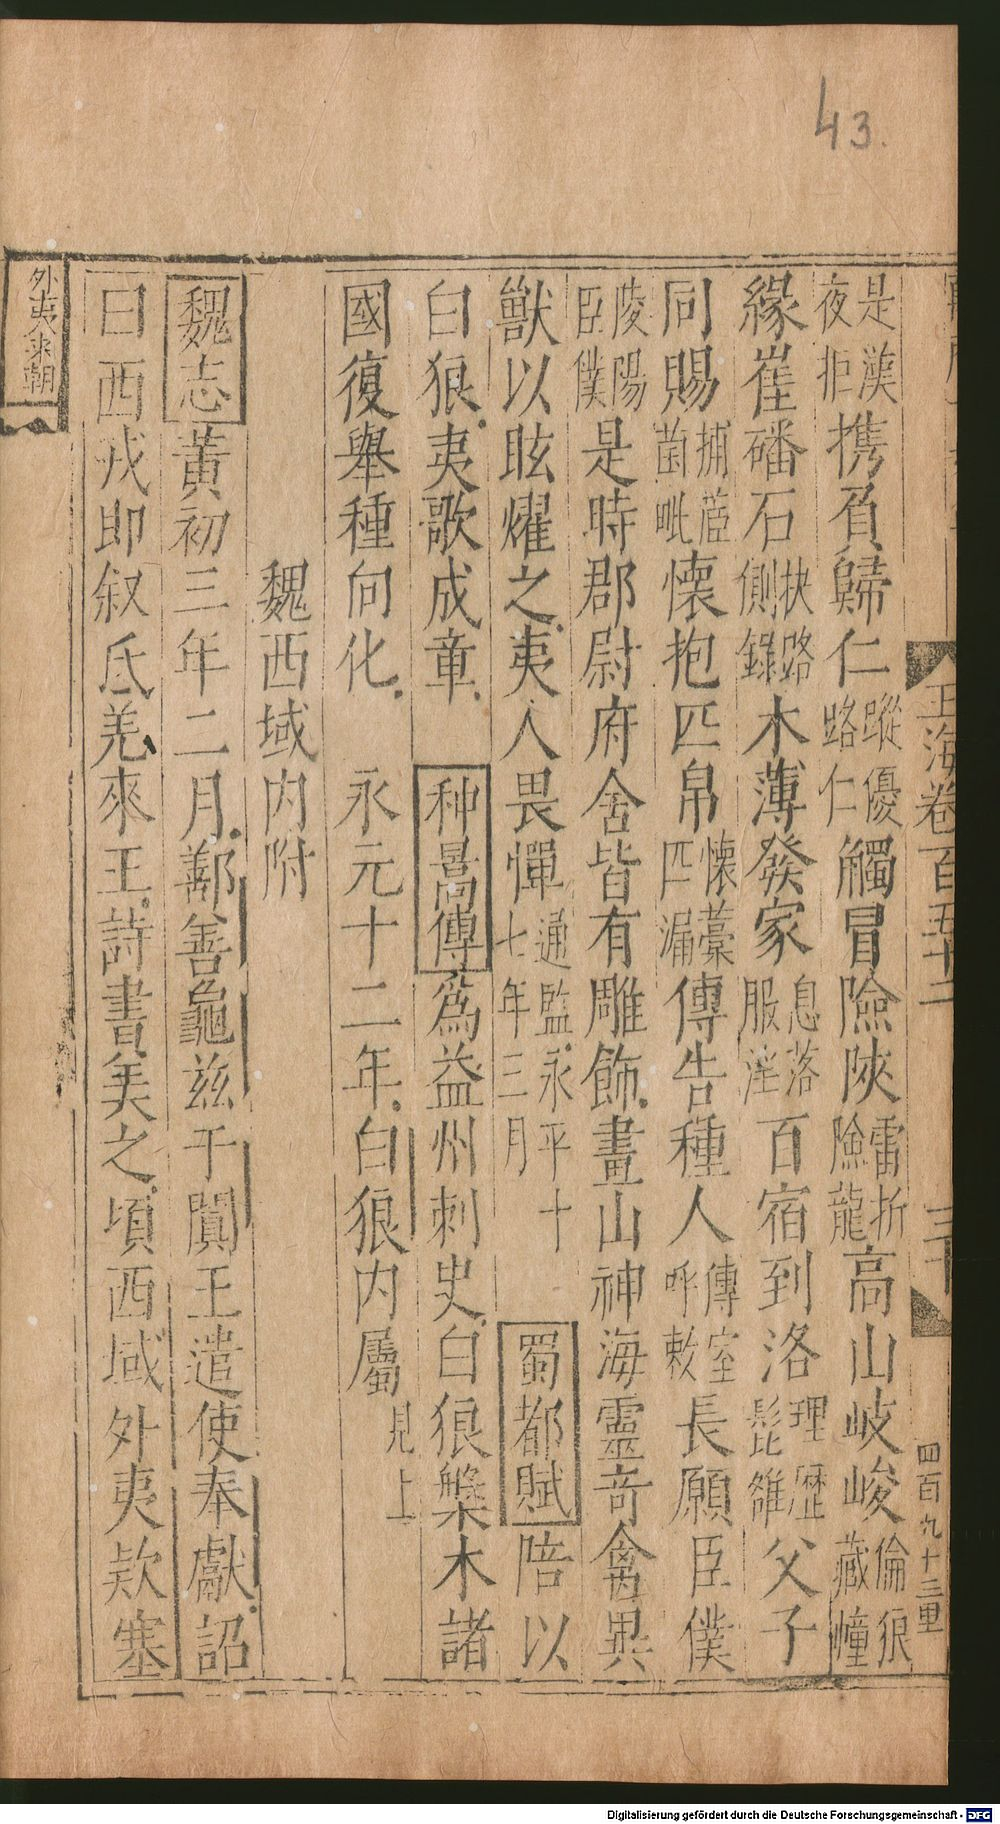 43.
玉海卷百五十二
三十
四百九十三里
是漢夜拒携負歸仁蹤優路仁觸冒險陝雷折險龍高山岐峻倫狼藏幢
緣崖磻石扶路側錄木薄發家息落服淫百宿到洛理瀝髭雒父子
同賜捕茝菌毗懷抱匹帛懷藁匹漏傳告種人傳室呼敕長願臣僕
陵陽臣僕是時郡尉府舍皆有雕飾畫山神海靈奇禽異
獸以眩燿之夷人畏憚通監永平十七年三月蜀都賦陪以
白狼夷歌成章种暠傳爲益州刺史白狼槃木諸
國復舉種向化永元十二年白狼內屬見上
魏西域內附
魏志黃初三年二月鄯善龜茲于闐王遣使奉獻詔
曰西戎即叙氐羌來王詩書美之頃西域外夷欵塞
外夷來朝
Digitalisierung gefördert durch die Deutsche Forschungsgemeinschaft - DFG